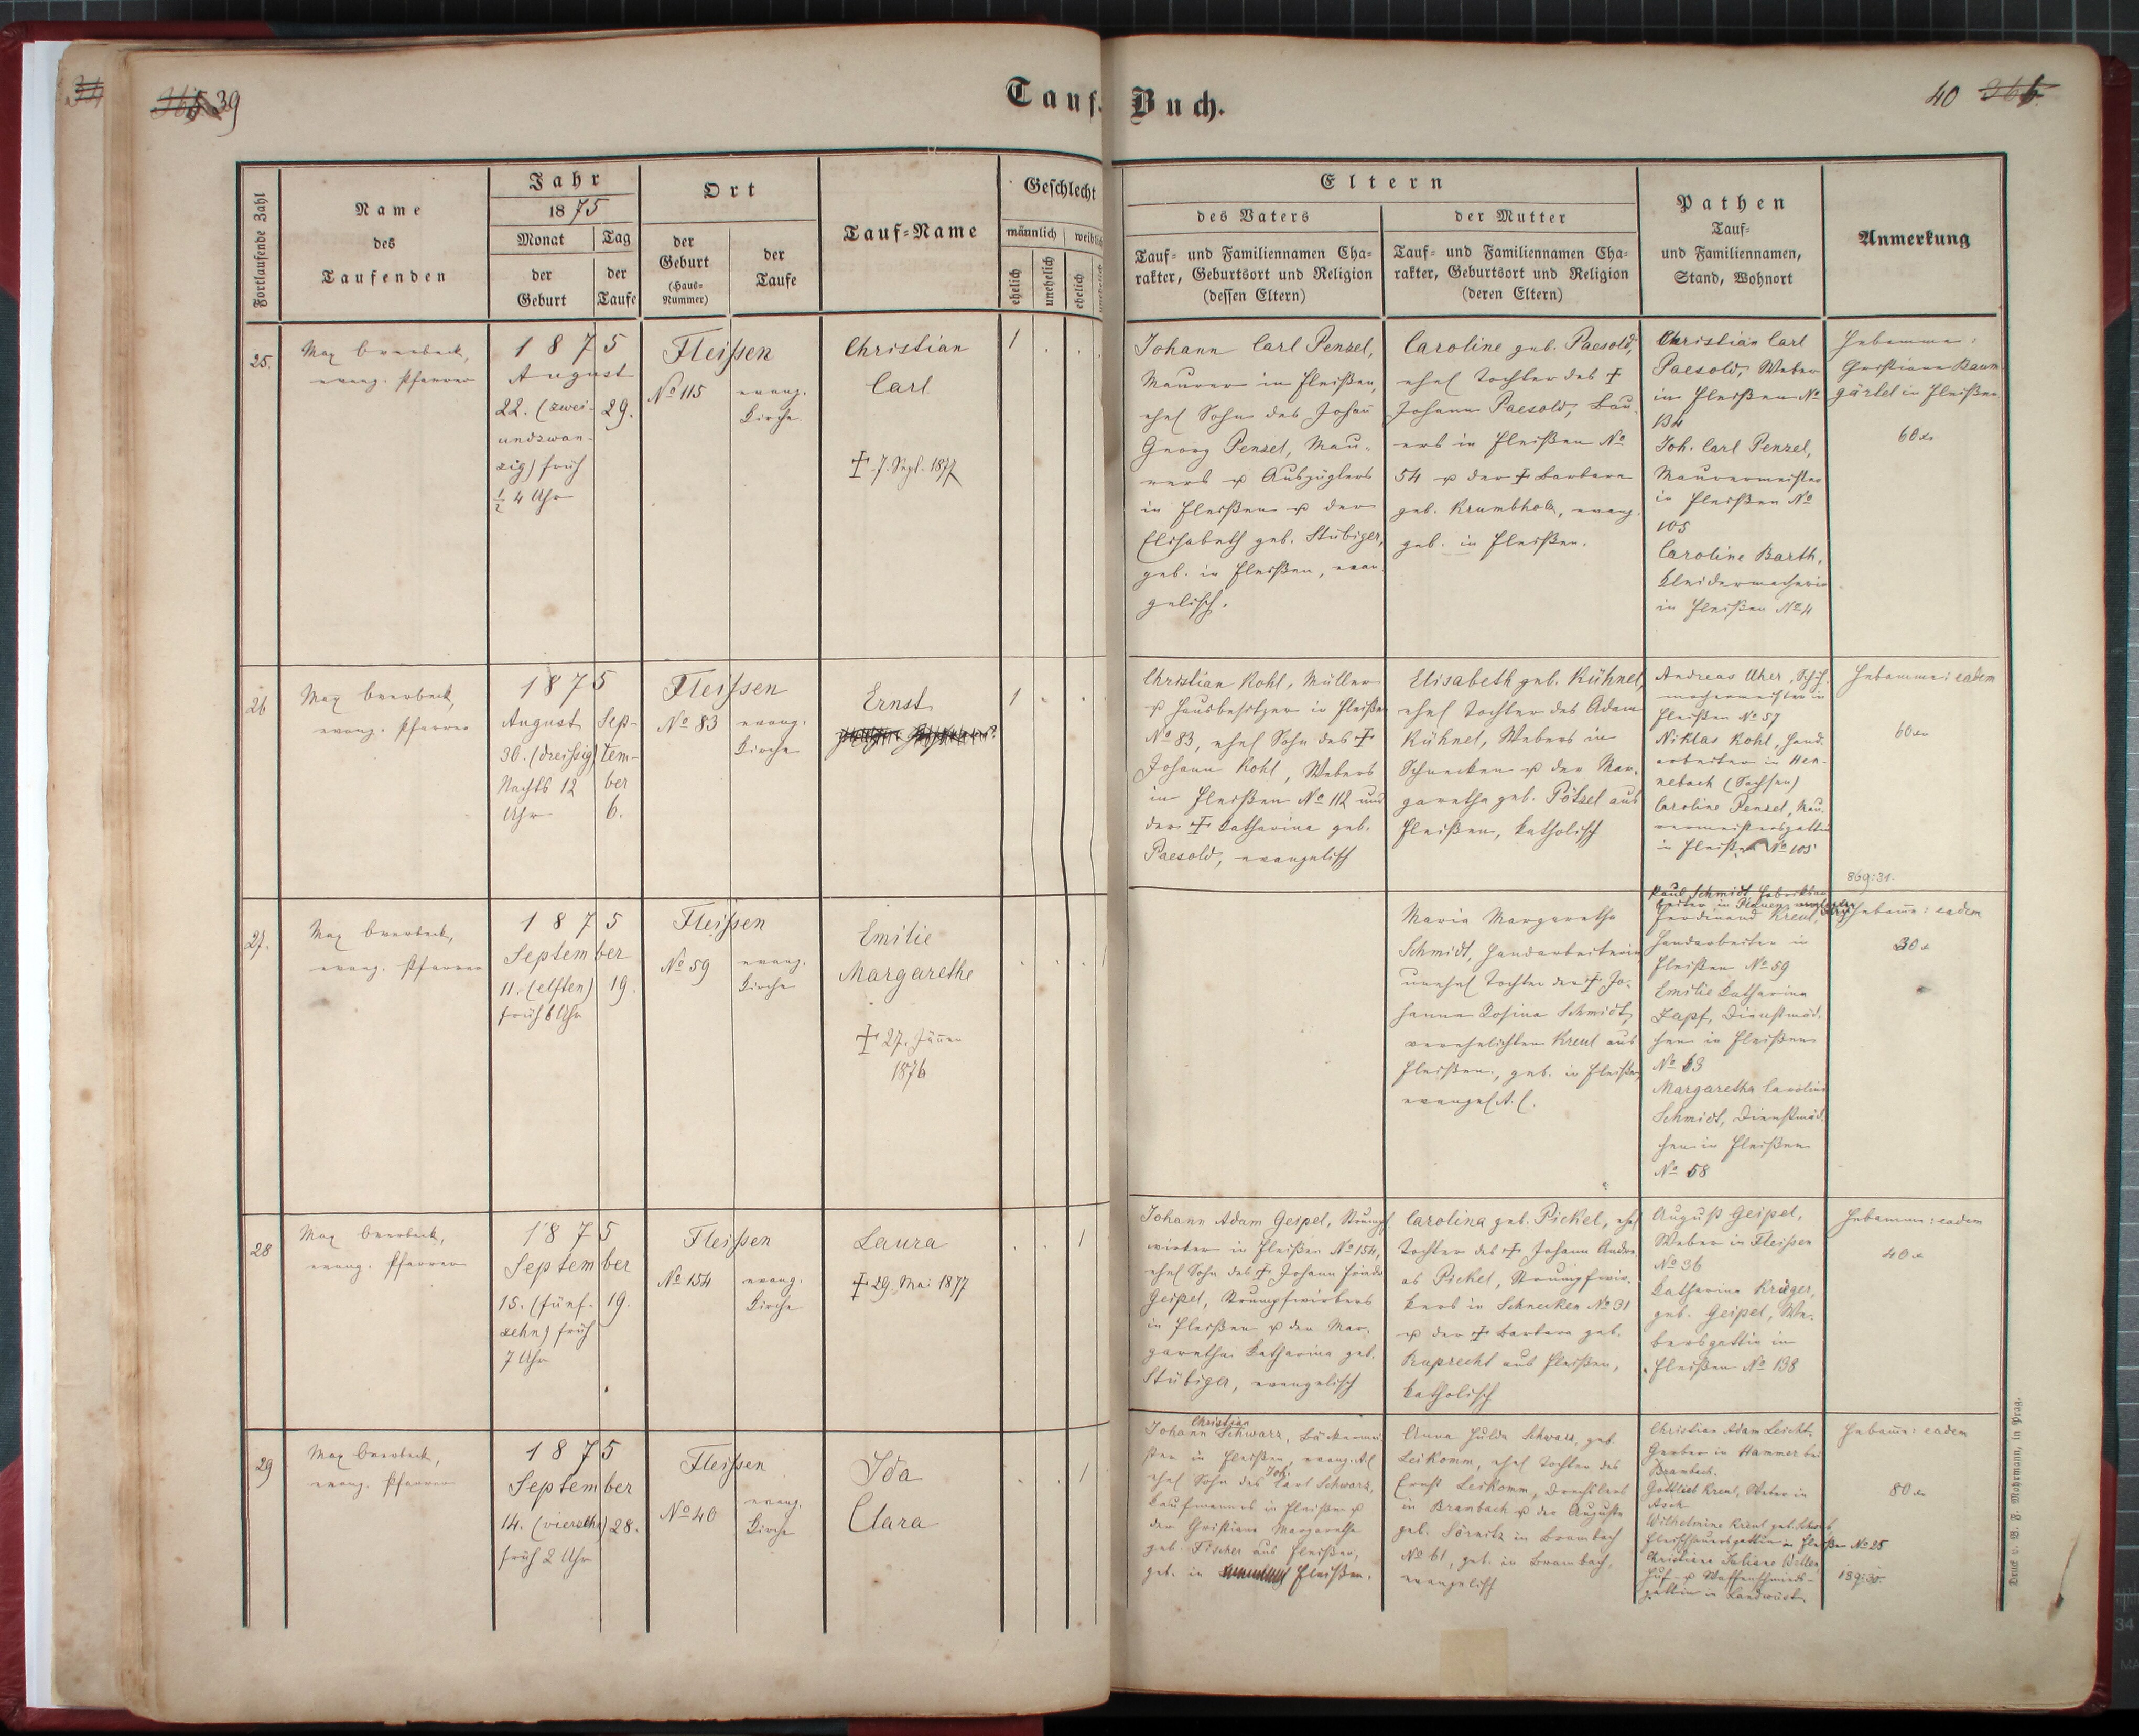 39
Tauf-Buch.
40
Fortlaufende Zahl
Name
des
Taufenden
Jahr
1875
Monat
der
Geburt
Tag
der
Taufe
Ort
der
Geburt
(Haus-
Nummer)
der
Taufe
Tauf-Name
Geschlecht
männlich
ehelich
unehelich
ehelich
Eltern
des Vaters
Tauf- und Familiennamen Cha-
rakter, Geburtsort und Religion
(dessen Eltern)
der Mutter
Tauf- und Familiennamen Cha-
rakter, Geburtsort und Religion
(deren Eltern)
Pathen
Tauf-
und Familiennamen,
Stand, Wohnort
Anmerkung
25.
Max Overbeck,
evang. Pfarrer
1875
August
22. (zwei-
undzwan-
zig) früh
½ 4 Uhr
29.
Fleißen
No 115
evang.
Kirche
Christian
Carl
† 7. Sept. 1877
1
Johann Carl Penzel,
Maurer in Fleißen,
ehel Sohn des Johann
Georg Penzel, Mau-
rers u Auszüglers
in Fleißen u der
Elisabeth geb. Stübiger,
geb. in Fleißen, evan-
gelisch.
Caroline geb. Paesold,
ehel Tochter des †
Johann Paesold, Bau-
ers in Fleißen No
54 u der † Barbara
geb. Krumbholz, evang.
geb. in Fleißen.
Christian Carl
Paesold, Weber
in Fleißen No
134
Joh. Carl Penzel,
Maurermeister
in Fleißen No
105
Caroline Barth,
Kleidermacherin
in Fleißen No 4
Hebamme:
Christiane Baum-
gärtel in Fleißen
60 x
26
Max Overbeck,
evang. Pfarrer
1875
August
30. (dreißig)
Nachts 12
Uhr
Sep-
tem-
ber
6.
Fleißen
No 83
evang.
Kirche
Ernst
1
Christian Kohl, Müller
u Hausbesitzer in Fleißen
No 83, ehel Sohn des †
Johann Kohl, Webers
in Fleißen No 112 und
der † Katharina geb.
Paesold, evangelisch
Elisabeth geb. Kühnel,
ehel Tochter des Adam
Kühnel, Webers in
Schnecken u der Mar-
garetha geb. Pötzel aus
Fleißen, katholisch
Andreas Uher, Schuh-
machermeister in
Fleißen No 57
Niklas Kohl, Hand-
arbeiter in Hen-
nebach (Sachsen)
Caroline Penzel, Mau-
rermeistersgattin
in Fleißen No 105
Hebamme: eadem
60 x
869:31.
27.
Max Overbeck,
evang. Pfarrer
1875
September
11. (elften)
früh 6 Uhr
19.
Fleißen
No 59
evang.
Kirche
Emilie
Margarethe
† 27. Jänner
1876
Maria Margaretha
Schmidt, Handarbeiterin
unehel Tochter der † Jo-
hanna Rosina Schmidt,
verehelichten Kreul aus
Fleißen, geb. in Fleißen,
evangel A. C.
Paul Schmidt, Fabriksar-
beiter in
Ferdinand Kreul,
Handarbeiter in
Fleißen No 59
Emilie Katharina
Zapf, Dienstmäd-
chen in Fleißen
No 63
Margaretha Carolina
Schmidt, Dienstmäd-
chen in Fleißen
No 58
Hebamme: eadem
30 x
28
Max Overbeck,
evang. Pfarrer
1875
September
15. (fünf-
zehn) früh
7 Uhr
19.
Fleißen
No 154
evang.
Kirche
Laura
† 29. Mai 1877
1
Johann Adam Geipel, Strumpf
wirker in Fleißen No 154,
ehel Sohn des † Johann Friedr
Geipel, Strumpfwirkers
in Fleißen u der Mar-
garetha Katharina geb.
Stübiger, evangelisch
Carolina geb. Pickel, ehel
Tochter des † Johann Andre-
as Pickel, Strumpfwir-
kers in Schnecken No 31
u der † Barbara geb.
Ruprecht aus Fleißen,
katholisch
August Geipel,
Weber in Fleissen
No 36
Katharina Krüger,
geb. Geipel, We-
bersgattin in
Fleißen No 138
Hebamme: eadem
40 x
29
Max Overbeck,
evang. Pfarrer
1875
September
14. (vierzehn)
früh 2 Uhr
28.
Fleißen
No 40
evang.
Kirche
Ida
Clara
1
Christian
Johann Schwarz, Bäckermei
ster in Fleißen, evang. A.C
Joh.
ehel Sohn des Carl Schwarz,
Kaufmannes in Fleißen u
der Christiana Margaretha
geb. Fischer aus Fleißen,
geb. in Fleißen.
Anna Hulda Schwarz, geb.
Leikomm, ehel Tochter des
Ernst Leikomm, Drechslers
in Brambach u der Auguste
geb. Sörnitz in Brambach
No 61, geb. in Brambach,
evangelisch
Christian Adam Leicht,
Gerber in Hammer bei
Brambach.
Gottlieb Kreul, Weber in
Asch
Wilhelmine Kreul geb. Schwarz
Fleischhauersgattin in Fleißen No 25
Christiane Juliane Weller,
Huf- u Waffenschmieds-
gattin in Landwüst.
Hebamme: eadem
80 x
189:30.
Druck v. B. F. Mohrmann, in Prag.